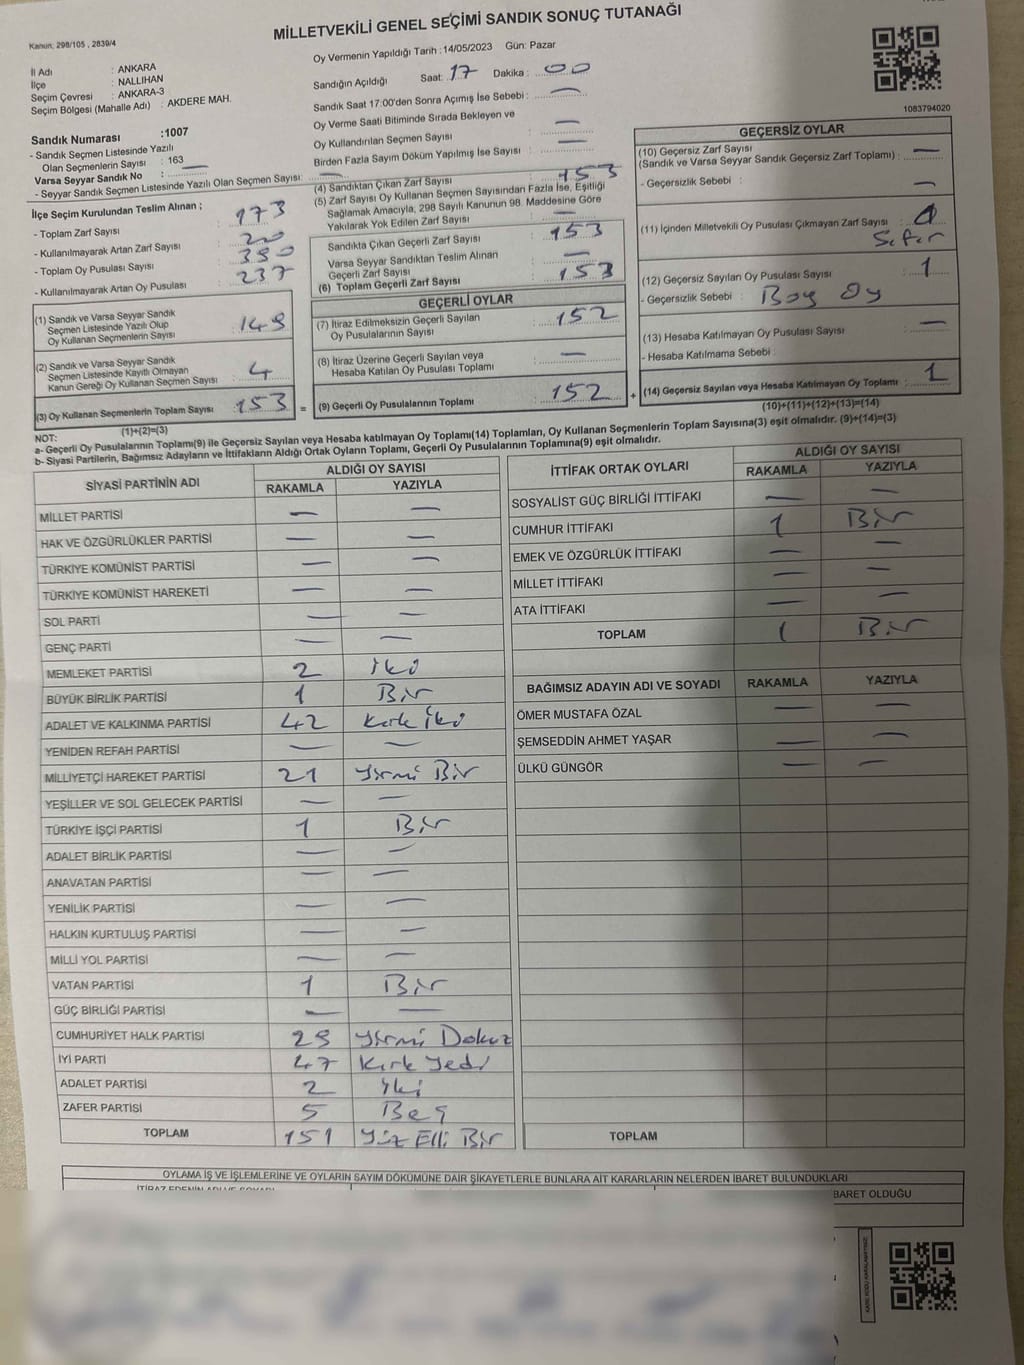 MİLLETVEKİLİ GENEL SEÇİMİ SANDIK SONUÇ TUTANAĞI
Kanun: 298/105 , 2839/4
İl Adı : ANKARA
İlçe : NALLIHAN
Seçim Çevresi : ANKARA-3
Seçim Bölgesi (Mahalle Adı) : AKDERE MAH.
Sandık Numarası :1007
- Sandık Seçmen Listesinde Yazılı
Olan Seçmenlerin Sayısı : 163
Varsa Seyyar Sandık No : —
- Seyyar Sandık Seçmen Listesinde Yazılı Olan Seçmen Sayısı: —
Oy Vermenin Yapıldığı Tarih :14/05/2023 Gün: Pazar
Sandığın Açıldığı Saat: 17 Dakika : 00
Sandık Saat 17:00'den Sonra Açımış İse Sebebi : —
Oy Verme Saati Bitiminde Sırada Bekleyen ve
Oy Kullandırılan Seçmen Sayısı : —
Birden Fazla Sayım Döküm Yapılmış İse Sayısı : —
1083794020
İlçe Seçim Kurulundan Teslim Alınan ;
- Toplam Zarf Sayısı : 173
- Kullanılmayarak Artan Zarf Sayısı : 20
- Toplam Oy Pusulası Sayısı : 390
- Kullanılmayarak Artan Oy Pusulası : 237
(1) Sandık ve Varsa Seyyar Sandık
Seçmen Listesinde Yazılı Olup
Oy Kullanan Seçmenlerin Sayısı : 149
(2) Sandık ve Varsa Seyyar Sandık
Seçmen Listesinde Kayıtlı Olmayan
Kanun Gereği Oy Kullanan Seçmen Sayısı : 4
(3) Oy Kullanan Seçmenlerin Toplam Sayısı : 153
(1)+(2)=(3)
(4) Sandıktan Çıkan Zarf Sayısı : 153
(5) Zarf Sayısı Oy Kullanan Seçmen Sayısından Fazla İse, Eşitliği
Sağlamak Amacıyla, 298 Sayılı Kanunun 98. Maddesine Göre
Yakılarak Yok Edilen Zarf Sayısı : —
Sandıkta Çıkan Geçerli Zarf Sayısı : 153
Varsa Seyyar Sandıktan Teslim Alınan
Geçerli Zarf Sayısı : —
(6) Toplam Geçerli Zarf Sayısı : 153
GEÇERLİ OYLAR
(7) İtiraz Edilmeksizin Geçerli Sayılan
Oy Pusulalarının Sayısı : 152
(8) İtiraz Üzerine Geçerli Sayılan veya
Hesaba Katılan Oy Pusulası Toplamı : —
= (9) Geçerli Oy Pusulalarının Toplamı : 152 +
GEÇERSİZ OYLAR
(10) Geçersiz Zarf Sayısı
(Sandık ve Varsa Seyyar Sandık Geçersiz Zarf Toplamı) : —
- Geçersizlik Sebebi : —
(11) İçinden Milletvekili Oy Pusulası Çıkmayan Zarf Sayısı : 0
Sıfır
(12) Geçersiz Sayılan Oy Pusulası Sayısı : 1
- Geçersizlik Sebebi : Boş Oy
(13) Hesaba Katılmayan Oy Pusulası Sayısı : —
- Hesaba Katılmama Sebebi :
(14) Geçersiz Sayılan veya Hesaba Katılmayan Oy Toplamı : 1
(10)+(11)+(12)+(13)=(14)
NOT:
a- Geçerli Oy Pusulalarının Toplamı(9) ile Geçersiz Sayılan veya Hesaba katılmayan Oy Toplamı(14) Toplamları, Oy Kullanan Seçmenlerin Toplam Sayısına(3) eşit olmalıdır. (9)+(14)=(3)
b- Siyasi Partilerin, Bağımsız Adayların ve İttifakların Aldığı Ortak Oyların Toplamı, Geçerli Oy Pusulalarının Toplamına(9) eşit olmalıdır.
SİYASİ PARTİNİN ADI ALDIĞI OY SAYISI
RAKAMLA YAZIYLA
MİLLET PARTİSİ — —
HAK VE ÖZGÜRLÜKLER PARTİSİ — —
TÜRKİYE KOMÜNİST PARTİSİ — —
TÜRKİYE KOMÜNİST HAREKETİ — —
SOL PARTİ — —
GENÇ PARTİ — —
MEMLEKET PARTİSİ 2 iki
BÜYÜK BİRLİK PARTİSİ 1 Bir
ADALET VE KALKINMA PARTİSİ 42 Kırk iki
YENİDEN REFAH PARTİSİ — —
MİLLİYETÇİ HAREKET PARTİSİ 21 Yirmi Bir
YEŞİLLER VE SOL GELECEK PARTİSİ — —
TÜRKİYE İŞÇİ PARTİSİ 1 Bir
ADALET BİRLİK PARTİSİ — —
ANAVATAN PARTİSİ — —
YENİLİK PARTİSİ — —
HALKIN KURTULUŞ PARTİSİ — —
MİLLİ YOL PARTİSİ — —
VATAN PARTİSİ 1 Bir
GÜÇ BİRLİĞİ PARTİSİ — —
CUMHURİYET HALK PARTİSİ 29 Yirmi Dokuz
İYİ PARTİ 47 Kırk Yedi
ADALET PARTİSİ 2 iki
ZAFER PARTİSİ 5 Beş
TOPLAM 151 Yüz Elli Bir
İTTİFAK ORTAK OYLARI ALDIĞI OY SAYISI
RAKAMLA YAZIYLA
SOSYALİST GÜÇ BİRLİĞİ İTTİFAKI — —
CUMHUR İTTİFAKI 1 Bir
EMEK VE ÖZGÜRLÜK İTTİFAKI — —
MİLLET İTTİFAKI — —
ATA İTTİFAKI — —
TOPLAM 1 Bir
BAĞIMSIZ ADAYIN ADI VE SOYADI RAKAMLA YAZIYLA
ÖMER MUSTAFA ÖZAL — —
ŞEMSEDDİN AHMET YAŞAR — —
ÜLKÜ GÜNGÖR — —
TOPLAM
OYLAMA İŞ VE İŞLEMLERİNE VE OYLARIN SAYIM DÖKÜMÜNE DAİR ŞİKAYETLERLE BUNLARA AİT KARARLARIN NELERDEN İBARET BULUNDUKLARI
BARET OLDUĞU